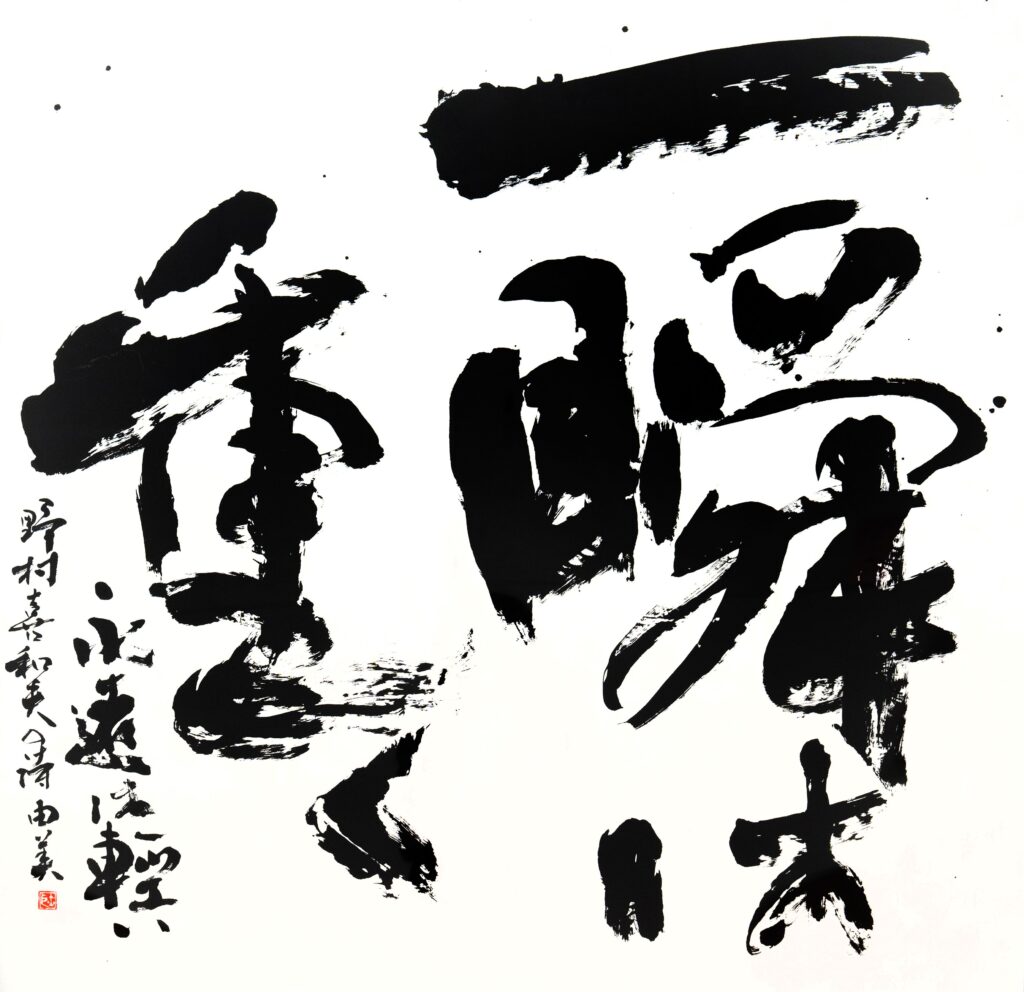 一瞬は
重く
永遠は輕い
野村喜和夫の詩由美